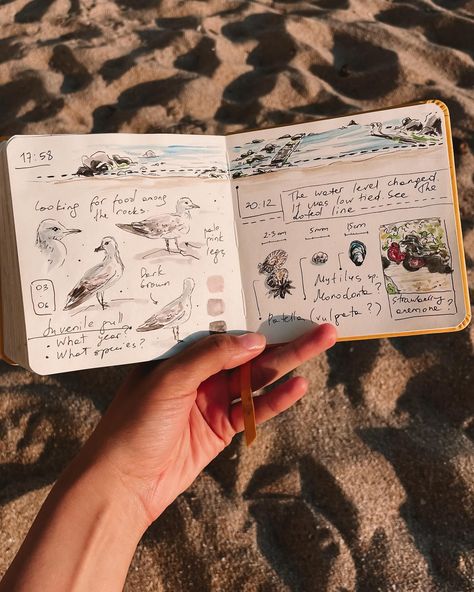 17:58
Looking for food among
the rocks.
pale
pink
legs
Dark
brown
03
06
Juvenile gull
• What year?
• What species?
20:12
The water level changed.
It was low tied. See The
doted line
2-3 cm
5 mm
15cm
Mytilus sp.
Monodonta?
Patella vulgata?
Strawberry
anemone?